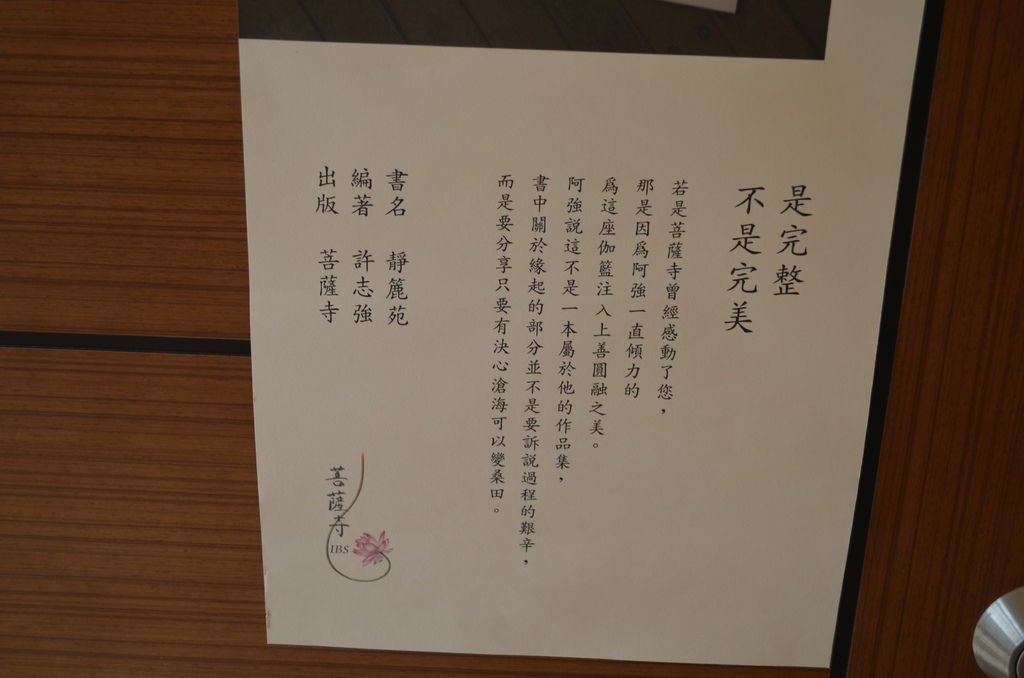 是完整
不是完美
若是菩薩寺曾經感動了您，
那是因為阿強一直傾力的
為這座伽籃注入上善圓融之美。
阿強說這不是一本屬於他的作品集，
書中關於緣起的部分並不是要訴說過程的艱辛，
而是要分享只要有決心滄海可以變桑田。
書名 靜篦苑
編著 許志強
出版 菩薩寺
菩薩寺
IBS